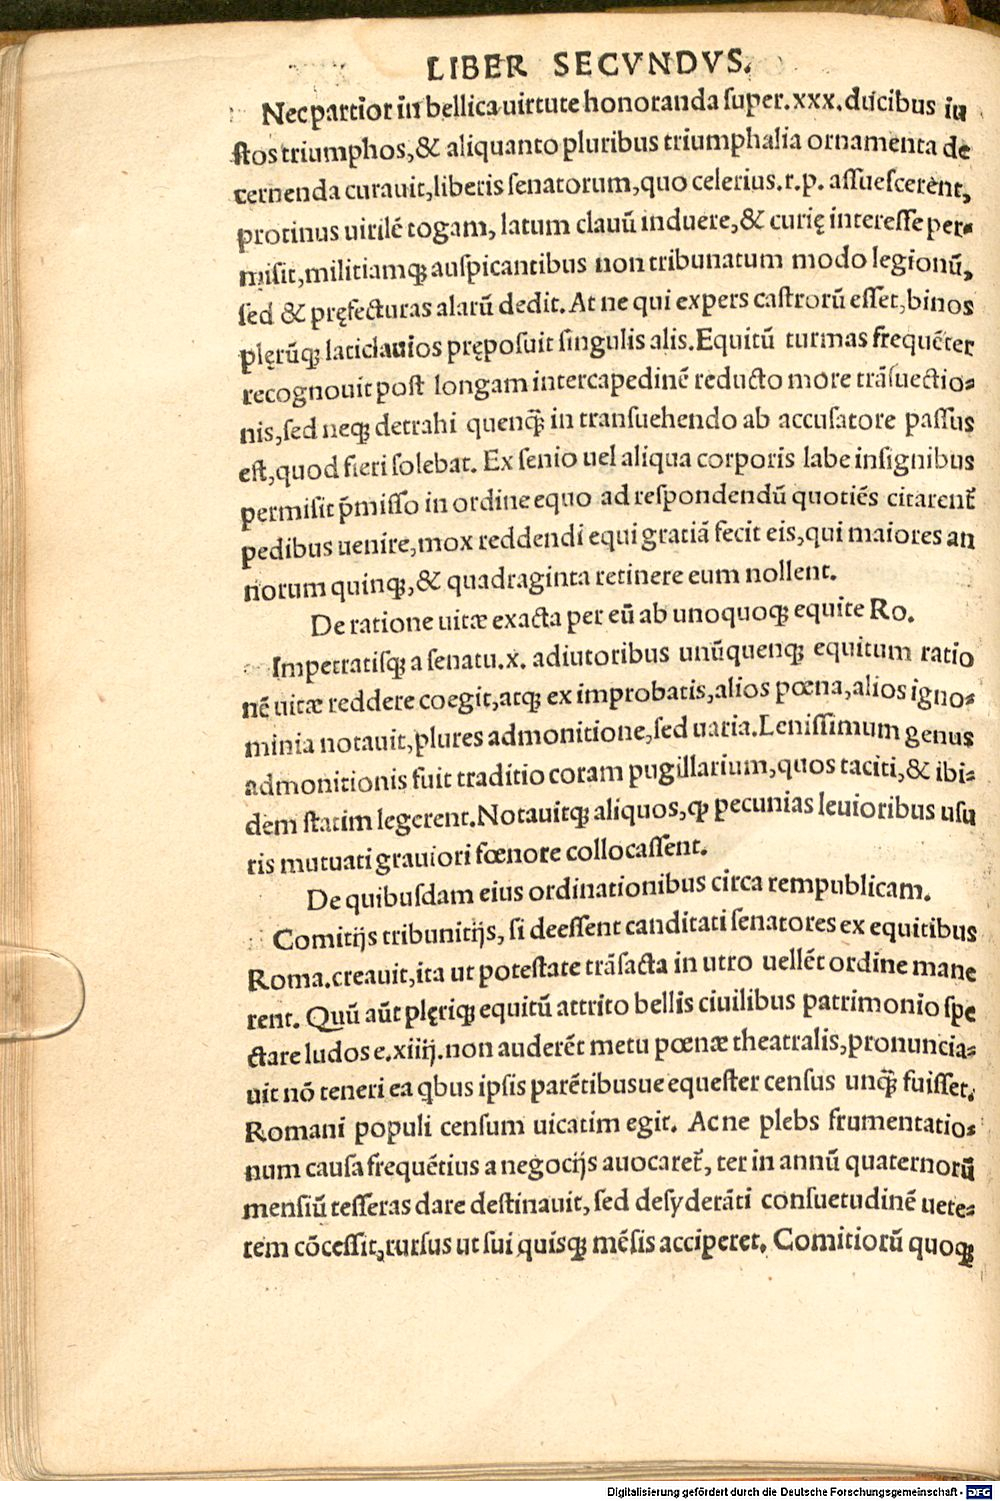 LIBER SECVNDVS.
Nec partior in bellica uirtute honoranda super.xxx.ducibus iu
stos triumphos,& aliquanto pluribus triumphalia ornamenta de
cernenda curauit,liberis senatorum,quo celerius.r.p. assuescerent,
protinus uirilē togam, latum clauū induere,& curię interesse per⸗
misit,militiamq; auspicantibus non tribunatum modo legionū,
sed & pręfecturas alarū dedit. At ne qui expers castrorū esset,binos
plerūq; laticlauios pręposuit singulis alis.Equitū turmas frequēter
recognouit post longam intercapedinē reducto more trāsuectio⸗
nis,sed neq; detrahi quenq̄; in transuehendo ab accusatore passus
est,quod fieri solebat. Ex senio uel aliqua corporis labe insignibus
permisit p̄misso in ordine equo ad respondendū quotiēs citarent̄
pedibus uenire,mox reddendi equi gratiā fecit eis,qui maiores an
norum quinq;,& quadraginta retinere eum nollent.
De ratione uitæ exacta per eū ab unoquoq; equite Ro.
Impetratisq; a senatu.x. adiutoribus unūquenq; equitum ratio
nē uitæ reddere coegit,atq; ex improbatis,alios pœna,alios igno⸗
minia notauit,plures admonitione,sed uaria.Lenissimum genus
admonitionis fuit traditio coram pugillarium,quos taciti,& ibi⸗
dem statim legerent.Notauitq; aliquos,ꝙ pecunias leuioribus usu
ris mutuati grauiori fœnore collocassent.
De quibusdam eius ordinationibus circa rempublicam.
Comitijs tribunitijs, si deessent canditati senatores ex equitibus
Roma.creauit,ita ut potestate trāsacta in utro uellēt ordine mane
rent. Quū aūt plęriq; equitū attrito bellis ciuilibus patrimonio spe
ctare ludos e.xiiij.non auderēt metu pœnæ theatralis,pronuncia⸗
uit nō teneri ea qbus ipsis parētibusue equester census unq̄; fuisset.
Romani populi censum uicatim egit. Ac ne plebs frumentatio⸗
num causa frequētius a negocijs auocaret̄, ter in annū quaternorū
mensiū tesseras dare destinauit, sed desyderāti consuetudinē uete⸗
rem cōcessit,rursus ut sui quisq; mēsis acciperet. Comitiorū quoq;
Digitalisierung gefördert durch die Deutsche Forschungsgemeinschaft - DFG